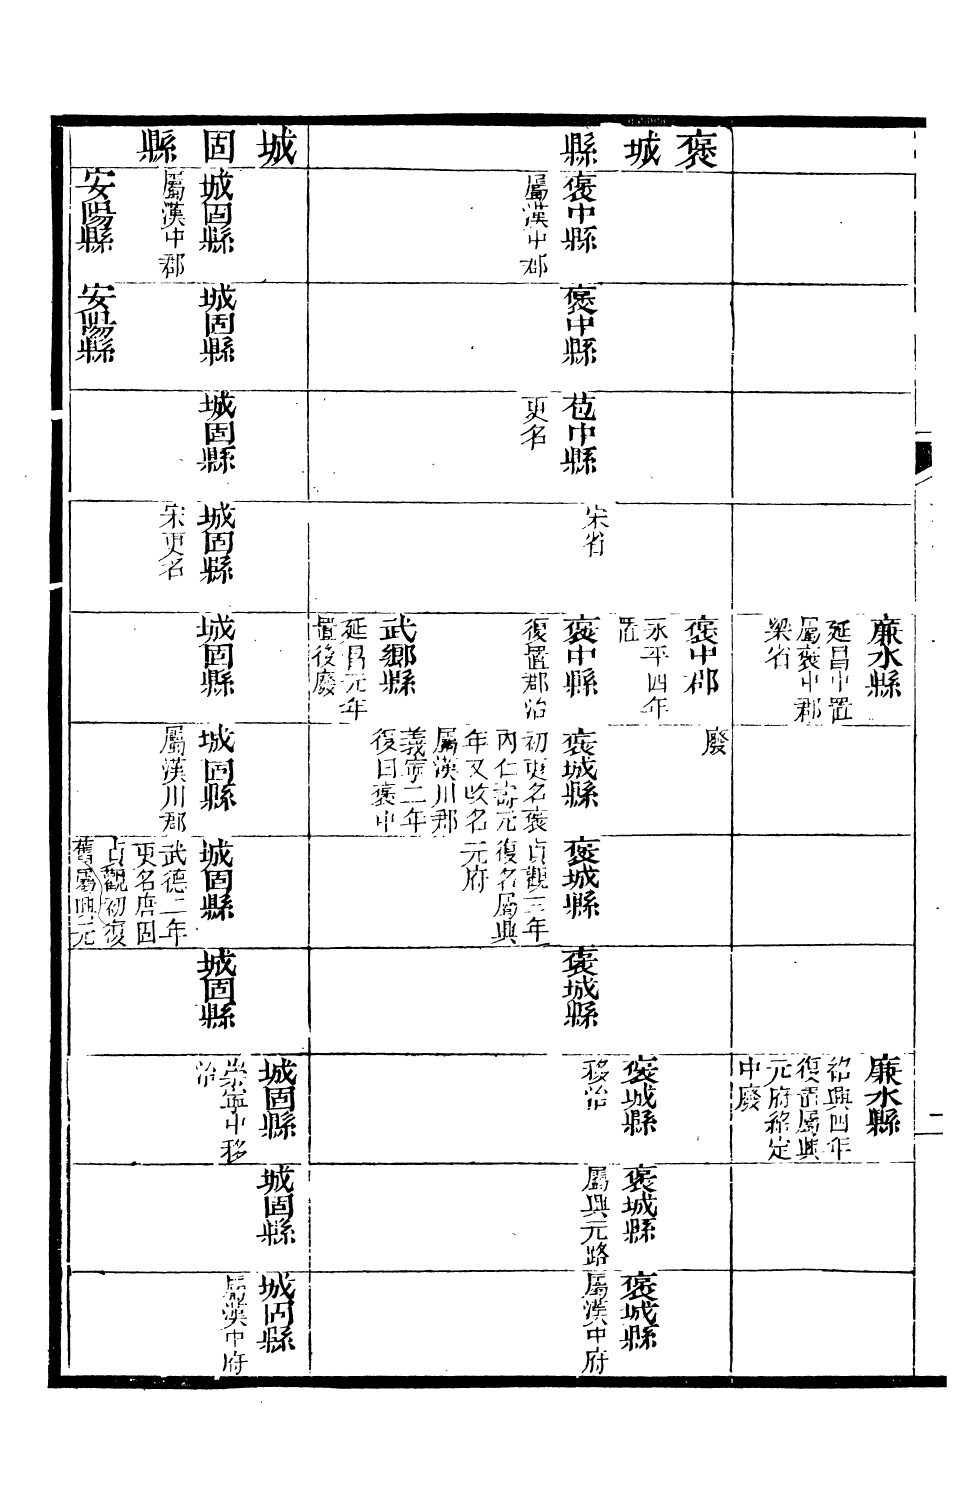 廉水縣
延昌中置
屬褒中郡
梁省
廉水縣
紹興四年
復置屬興
元府紹定
中廢
褒城縣
褒中縣
屬漢中郡
褒中縣
苞中縣
更名
宋省
褒中郡
永平四年
置
褒中縣
復置郡治
武鄉縣
延昌元年
置後廢
廢
褒城縣
初更名褒
內仁壽元
年又改名
屬漢川郡
義寧二年
復曰褒中
褒城縣
貞觀三年
復名屬興
元府
褒城縣
褒城縣
移治
褒城縣
屬興元路
褒城縣
屬漢中府
城固縣
城固縣
屬漢中郡
安陽縣
城固縣
安陽縣
城固縣
城固縣
宋更名
城固縣
城固縣
屬漢川郡
城固縣
武德二年
更名唐固
貞觀初復
舊屬興元
城固縣
城固縣
崇寧中移
治
城固縣
城固縣
屬漢中府
二